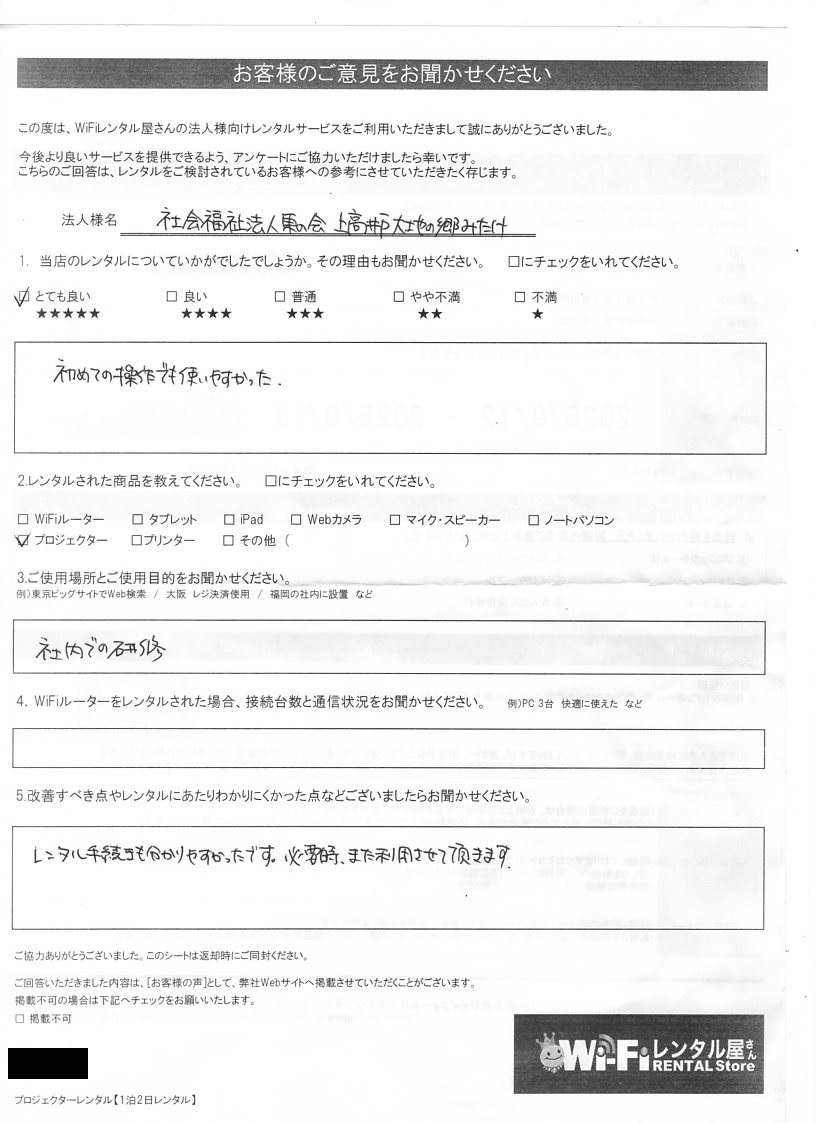 お客様のご意見をお聞かせください
この度は、WiFiレンタル屋さんの法人様向けレンタルサービスをご利用いただきまして誠にありがとうございました。
今後より良いサービスを提供できるよう、アンケートにご協力いただけましたら幸いです。
こちらのご回答は、レンタルをご検討されているお客様への参考にさせていただきたく存じます。
法人様名 社会福祉法人東の会 上高井戸大地の郷みたけ
1. 当店のレンタルについていかがでしたでしょうか。その理由もお聞かせください。 □にチェックをいれてください。
☑ とても良い □ 良い □ 普通 □ やや不満 □ 不満
★★★★★ ★★★★ ★★★ ★★ ★
初めての操作でも使いやすかった.
2.レンタルされた商品を教えてください。 □にチェックをいれてください。
□ WiFiルーター □ タブレット □ iPad □ Webカメラ □ マイク・スピーカー □ ノートパソコン
☑ プロジェクター □プリンター □ その他 ( )
3.ご使用場所とご使用目的をお聞かせください。
例)東京ビッグサイトでWeb検索 / 大阪 レジ決済使用 / 福岡の社内に設置 など
社内での研修
4. WiFiルーターをレンタルされた場合、接続台数と通信状況をお聞かせください。 例)PC 3台 快適に使えた など
5.改善すべき点やレンタルにあたりわかりにくかった点などございましたらお聞かせください。
レンタル手続きも分かりやすかったです。必要時、また利用させて頂きます.
ご協力ありがとうございました。このシートは返却時にご同封ください。
ご回答いただきました内容は、[お客様の声]として、弊社Webサイトへ掲載させていただくことがございます。
掲載不可の場合は下記へチェックをお願いいたします。
□ 掲載不可
Wi-Fiレンタル屋さん
RENTAL Store
プロジェクターレンタル【1泊2日レンタル】